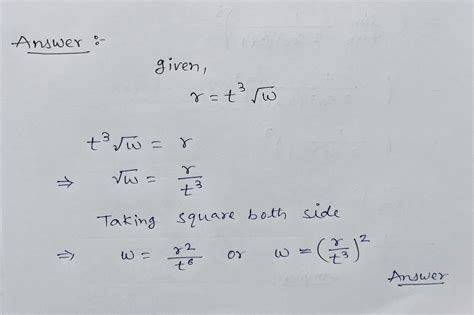 Answer :-
given,
r = t³ √w
t³ √w = r
⇒ √w = r/t³
Taking square both side
⇒ w = r²/t⁶ or w = (r/t³)²
Answer